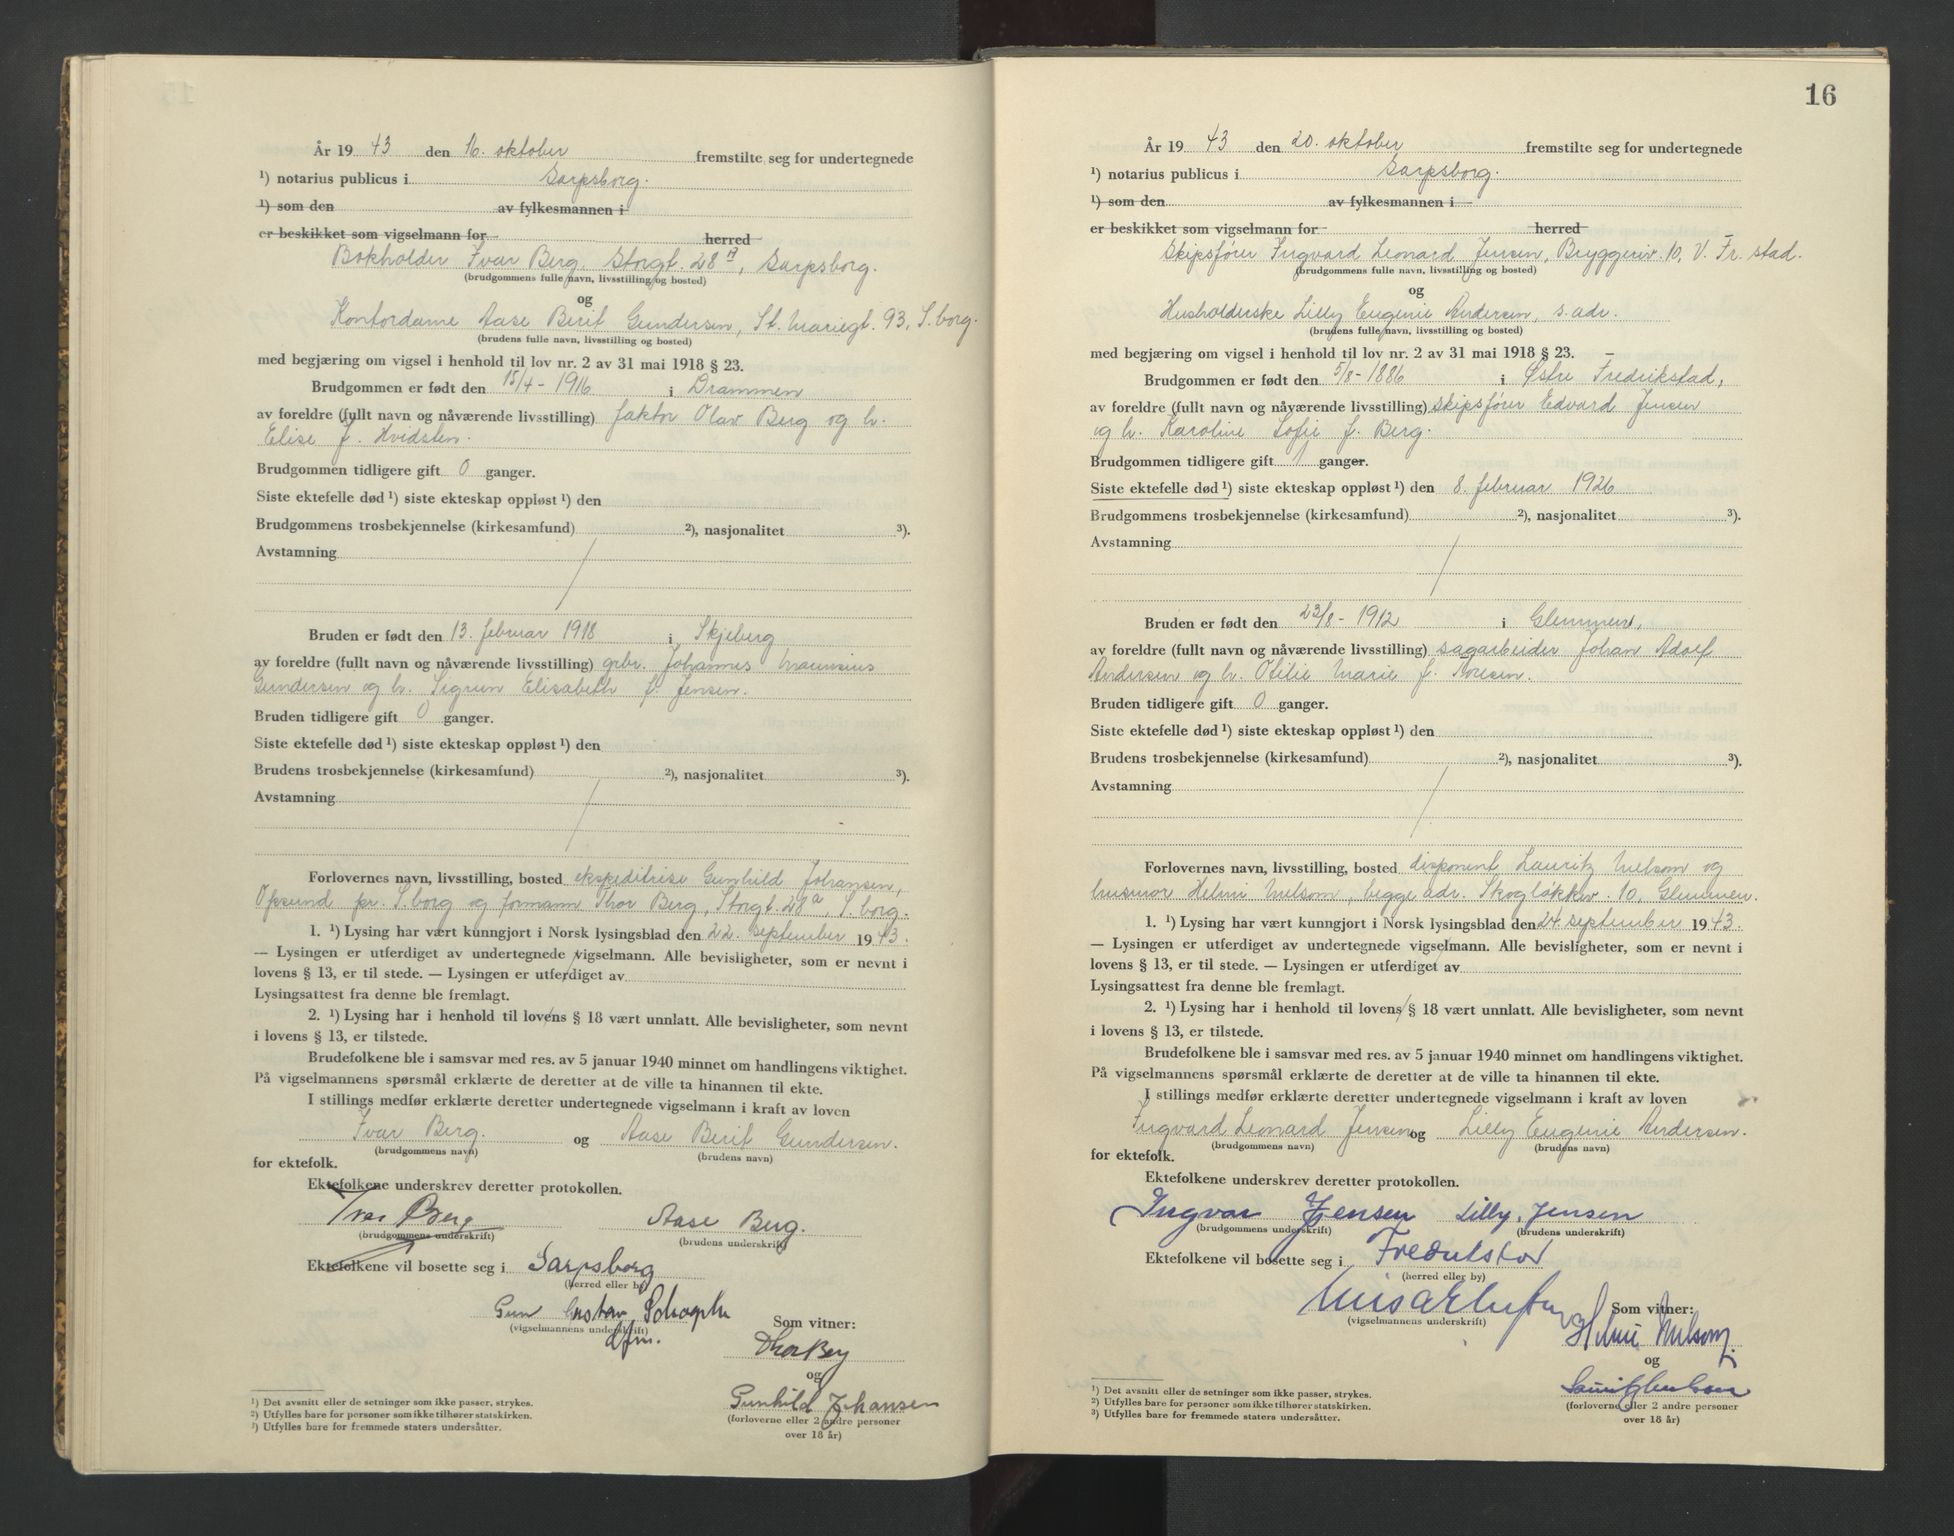 År 19 43 den 16. oktober fremstilte seg for undertegnede
¹) notarius publicus i Sarpsborg.
¹) som den av fylkesmannen i
er beskikket som vigselmann for herred
Bokholder Ivar Berg, Storgt. 28 A, Sarpsborg.
(brudgommens fulle navn, livsstilling og bosted)
og
Kontordame Aase Berit Gundersen, St. Mariegt. 93, S.borg.
(brudens fulle navn, livsstilling og bosted)
med begjæring om vigsel i henhold til lov nr. 2 av 31 mai 1918 § 23.
Brudgommen er født den 15/4 - 1916 i Drammen
av foreldre (fullt navn og nåværende livsstilling) faktor Olav Berg og h.
Elise f. Hvidsten.
Brudgommen tidligere gift 0 ganger.
Siste ektefelle død ¹) siste ekteskap oppløst ¹) den
Brudgommens trosbekjennelse (kirkesamfund) ²), nasjonalitet ³).
Avstamning
Bruden er født den 13. februar 1918 i Skjeberg
av foreldre (fullt navn og nåværende livsstilling) grbr. Johannes
Gundersen og h. Sigrun Elisabeth f. Jensen.
Bruden tidligere gift 0 ganger.
Siste ektefelle død ¹) siste ekteskap oppløst ¹) den
Brudens trosbekjennelse (kirkesamfund) ²), nasjonalitet ³).
Avstamning
Forlovernes navn, livsstilling, bosted ekspeditrise Gunhild Johansen,
Opsund pr. S.borg og formann Thor Berg, Storgt. 28 a, S.borg.
1. ¹) Lysing har vært kunngjort i Norsk lysingsblad den 22. september 19 43.
— Lysingen er utferdiget av undertegnede vigselmann. Alle bevisligheter, som er nevnt i
lovens § 13, er til stede. — Lysingen er utferdiget av
Lysingsattest fra denne ble fremlagt.
2. ¹) Lysing har i henhold til lovens § 18 vært unnlatt. Alle bevisligheter, som nevnt
i lovens § 13, er tilstede.
Brudefolkene ble i samsvar med res. av 5 januar 1940 minnet om handlingens viktighet.
På vigselmannens spørsmål erklærte de deretter at de ville ta hinannen til ekte.
I stillings medfør erklærte deretter undertegnede vigselmann i kraft av loven
Ivar Berg. og Aase Berit Gundersen.
(brudgommens navn) (brudens navn)
for ektefolk.
Ektefolkene underskrev deretter protokollen.
Ivar Berg Aase Berg.
(brudgommens underskrift) (brudens underskrift)
Ektefolkene vil bosette seg i Sarpsborg
(herred eller by)
Gustav
(vigselmannens underskrift)
dfm.
Som vitner:
Thor Berg
og
Gunhild Johansen
(forloverne eller 2 andre personer
over 18 år)
¹) Det avsnitt eller de setninger som ikke passer, strykes.
²) Utfylles bare for personer som ikke tilhører statskirken.
³) Utfylles bare for fremmede staters undersåtter.
16
År 19 43 den 20. oktober fremstilte seg for undertegnede
¹) notarius publicus i Sarpsborg.
¹) som den av fylkesmannen i
er beskikket som vigselmann for herred
Skipsfører Ingvard Leonard Jensen, Bryggeriv. 10, V. Fr.stad.
(brudgommens fulle navn, livsstilling og bosted)
og
Husholderske Lilly Eugenie Andersen, s. adr.
(brudens fulle navn, livsstilling og bosted)
med begjæring om vigsel i henhold til lov nr. 2 av 31 mai 1918 § 23.
Brudgommen er født den 5/8 - 1886 i Østre Fredrikstad,
av foreldre (fullt navn og nåværende livsstilling) skipsfører Edvard Jensen
og h. Karoline Sofie f. Berg.
Brudgommen tidligere gift 1 ganger.
Siste ektefelle død ¹) siste ekteskap oppløst ¹) den 8. februar 1926
Brudgommens trosbekjennelse (kirkesamfund) ²), nasjonalitet ³).
Avstamning
Bruden er født den 23/8 - 1912 i Glemmen,
av foreldre (fullt navn og nåværende livsstilling) sagarbeider Johan Adolf
Andersen og h. Otilie Marie f.
Bruden tidligere gift 0 ganger.
Siste ektefelle død ¹) siste ekteskap oppløst ¹) den
Brudens trosbekjennelse (kirkesamfund) ²), nasjonalitet ³).
Avstamning
Forlovernes navn, livsstilling, bosted disponent Lauritz Melsom og
husmor Helmi Melsom, begge adr. Skogløkkv. 10, Glemmen.
1. ¹) Lysing har vært kunngjort i Norsk lysingsblad den 24. september 19 43.
— Lysingen er utferdiget av undertegnede vigselmann. Alle bevisligheter, som er nevnt i
lovens § 13, er til stede. — Lysingen er utferdiget av
Lysingsattest fra denne ble fremlagt.
2. ¹) Lysing har i henhold til lovens § 18 vært unnlatt. Alle bevisligheter, som nevnt
i lovens § 13, er tilstede.
Brudefolkene ble i samsvar med res. av 5 januar 1940 minnet om handlingens viktighet.
På vigselmannens spørsmål erklærte de deretter at de ville ta hinannen til ekte.
I stillings medfør erklærte deretter undertegnede vigselmann i kraft av loven
Ingvard Leonard Jensen og Lilly Eugenie Andersen.
(brudgommens navn) (brudens navn)
for ektefolk.
Ektefolkene underskrev deretter protokollen.
Ingvar Jensen Lilly Jensen
(brudgommens underskrift) (brudens underskrift)
Ektefolkene vil bosette seg i Fredrikstad
(herred eller by)
(vigselmannens underskrift)
Som vitner:
Helmi Melsom
og
(forloverne eller 2 andre personer
over 18 år)
¹) Det avsnitt eller de setninger som ikke passer, strykes.
²) Utfylles bare for personer som ikke tilhører statskirken.
³) Utfylles bare for fremmede staters undersåtter.